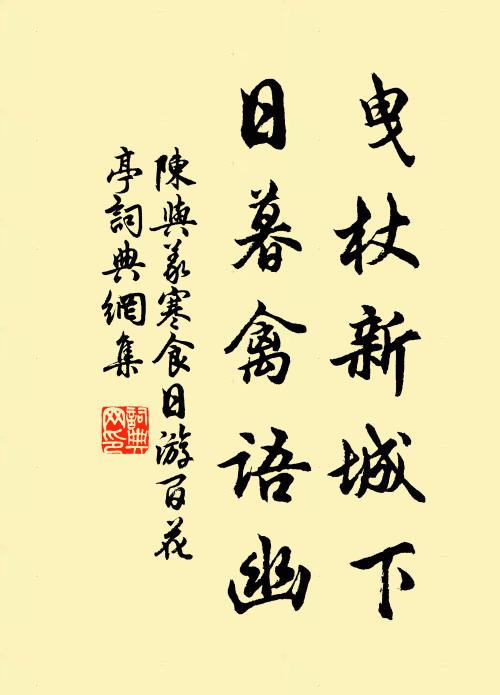 曳杖新城下
日暮禽語幽
陳與義寒食日游百花
亭詞典網集
詞典
网印